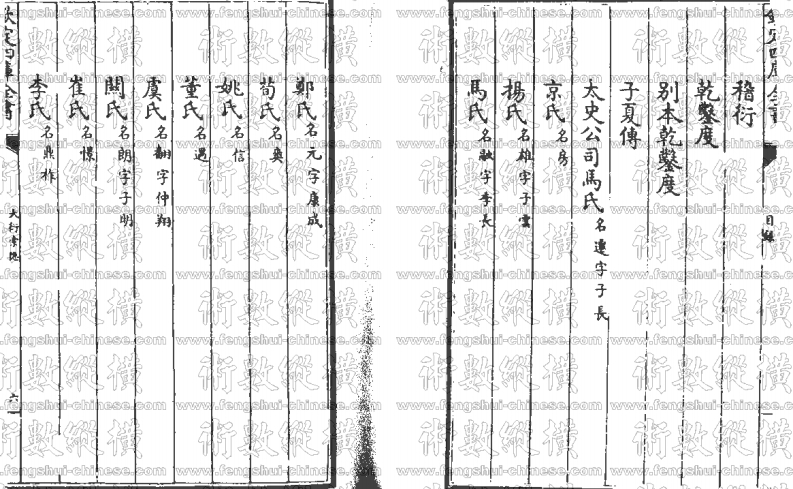 稽衍
乾鑿度
別本乾鑿度
子夏傳
太史公司馬氏名遷字子長
京氏名房
揚氏名雄字子雲
馬氏名融字季長
鄭氏名元字康成
荀氏名爽
姚氏名信
董氏名遇
虞氏名翻字仲翔
關氏名朗字子明
崔氏名憬
李氏名鼎祚
欽定四庫全書
大衍索隱
六
目錄
術數縱橫
www.fengshui-chinese.com